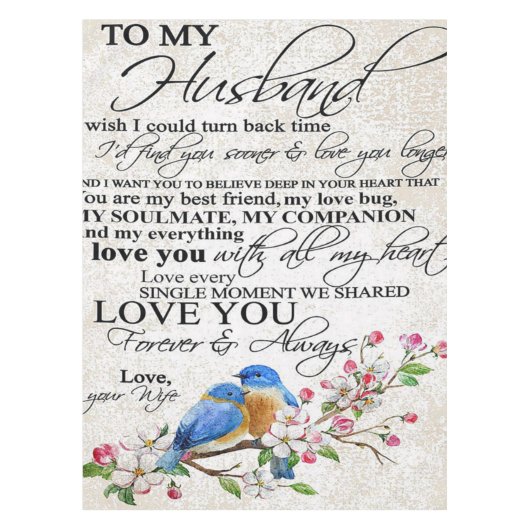 TO MY
Husband
wish I could turn back time
I'd find you sooner & love you longe
ND I WANT YOU TO BELIEVE DEEP IN YOUR HEART THAT
You are my best friend, my love bug,
MY SOULMATE, MY COMPANION
and my everything
love you with all my heart
Love every
SINGLE MOMENT WE SHARED
LOVE YOU
Forever & Always
Love,
your Wife